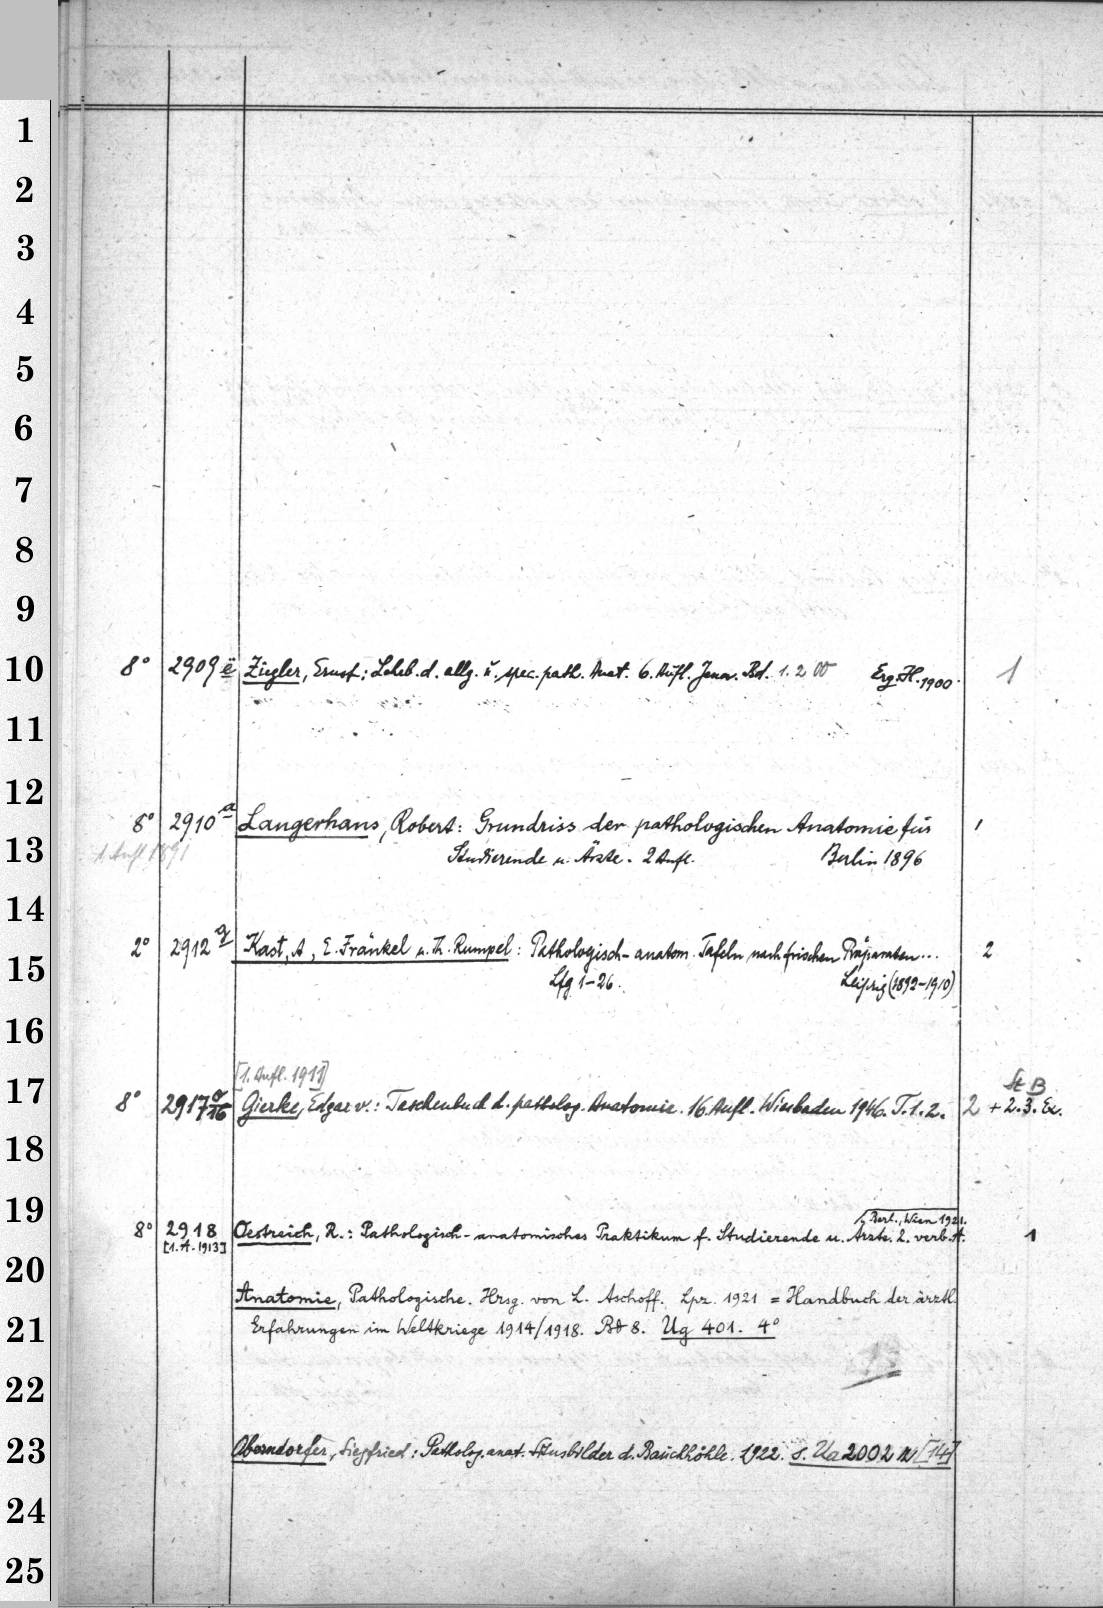 1
2
3
4
5
6
7
8
9
10
11
12
13
14
15
16
17
18
19
20
21
22
23
24
25
8° 2909 ë Ziegler, Ernst: Lehrb. d. allg. u. spec. path. Anat. 6. Aufl. Jena. Bd. 1. 2 Erg.-H. 1900. 1
8° 2910 a Langerhans, Robert: Grundriss der pathologischen Anatomie für 1
1 Aufl 1891 Studierende u. Ärzte. 2 Aufl. Berlin 1896
2° 2912 g Kast, A, E. Fränkel u. Th. Rumpel: Pathologisch-anatom. Tafeln nach frischen Präparaten... 2
Lfg 1-26. Leipzig (1892-1910)
[1. Aufl. 1911] St B
8° 2917 a/16 Gierke, Edgar v.: Taschenbuch d. patholog. Anatomie. 16. Aufl. Wiesbaden 1946. T. 1. 2. 2 + 2. 3. Ex.
Berl., Wien 1921.
8° 2918 Oestreich, R.: Pathologisch-anatomisches Praktikum f. Studierende u. Ärzte. 2. verb. A. 1
[1. A. 1913]
Anatomie, Pathologische. Hrsg. von L. Aschoff. Lpz. 1921 = Handbuch der ärztl.
Erfahrungen im Weltkriege 1914/1918. Bd 8. Ug 401. 4°
13
Oberndorfer, Siegfried: Patholog. anat. Situsbilder d. Bauchhöhle. 1922. s. Ua 2002 [14]